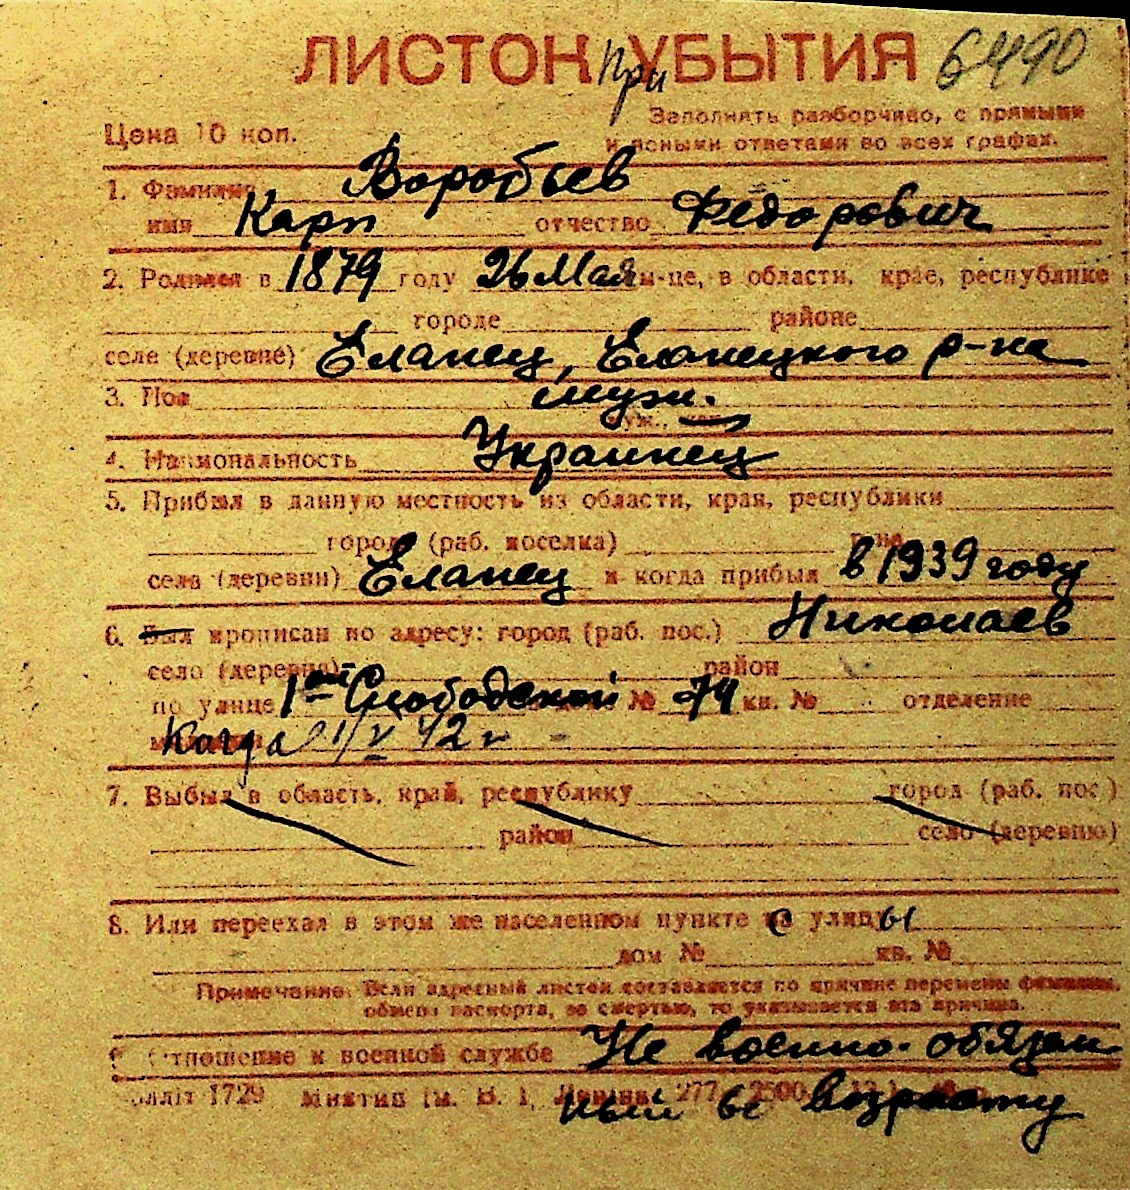 ЛИСТОК При УБЫТИЯ 6490
Цена 10 коп.
Заполнять разборчиво, с прямыми
и ясными ответами во всех графах.
1. Фамилия Воробьев
имя Карп отчество Федорович
2. Родился в 1879 году 26 Мая м-це, в области, крае, республике
городе районе
селе (деревне) Еланец, Еланецкого р-на
3. Пол муж.
муж.,
4. Национальность Украинец
5. Прибыл в данную местность из области, края, республики
города (раб. поселка) р-на
села (деревни) Еланец и когда прибыл в 1939 году
6. Был прописан по адресу: город (раб. пос.) Николаев
село (деревня) район
по улице 1ой Слободской № 74 кв. № отделение
Когда 1/V 42 г
7. Выбыл в область, край, республику город (раб. пос.)
район село (деревню)
8. Или переехал в этом же населенном пункте с улицы
дом № кв. №
Примечание: Если адресный листок составляется по причине перемены фамилии,
обмена паспорта, за смертью, то указывается эта причина.
9. Отношение к военной службе Не военно-обязан
ный по возрасту
1729 277 2500